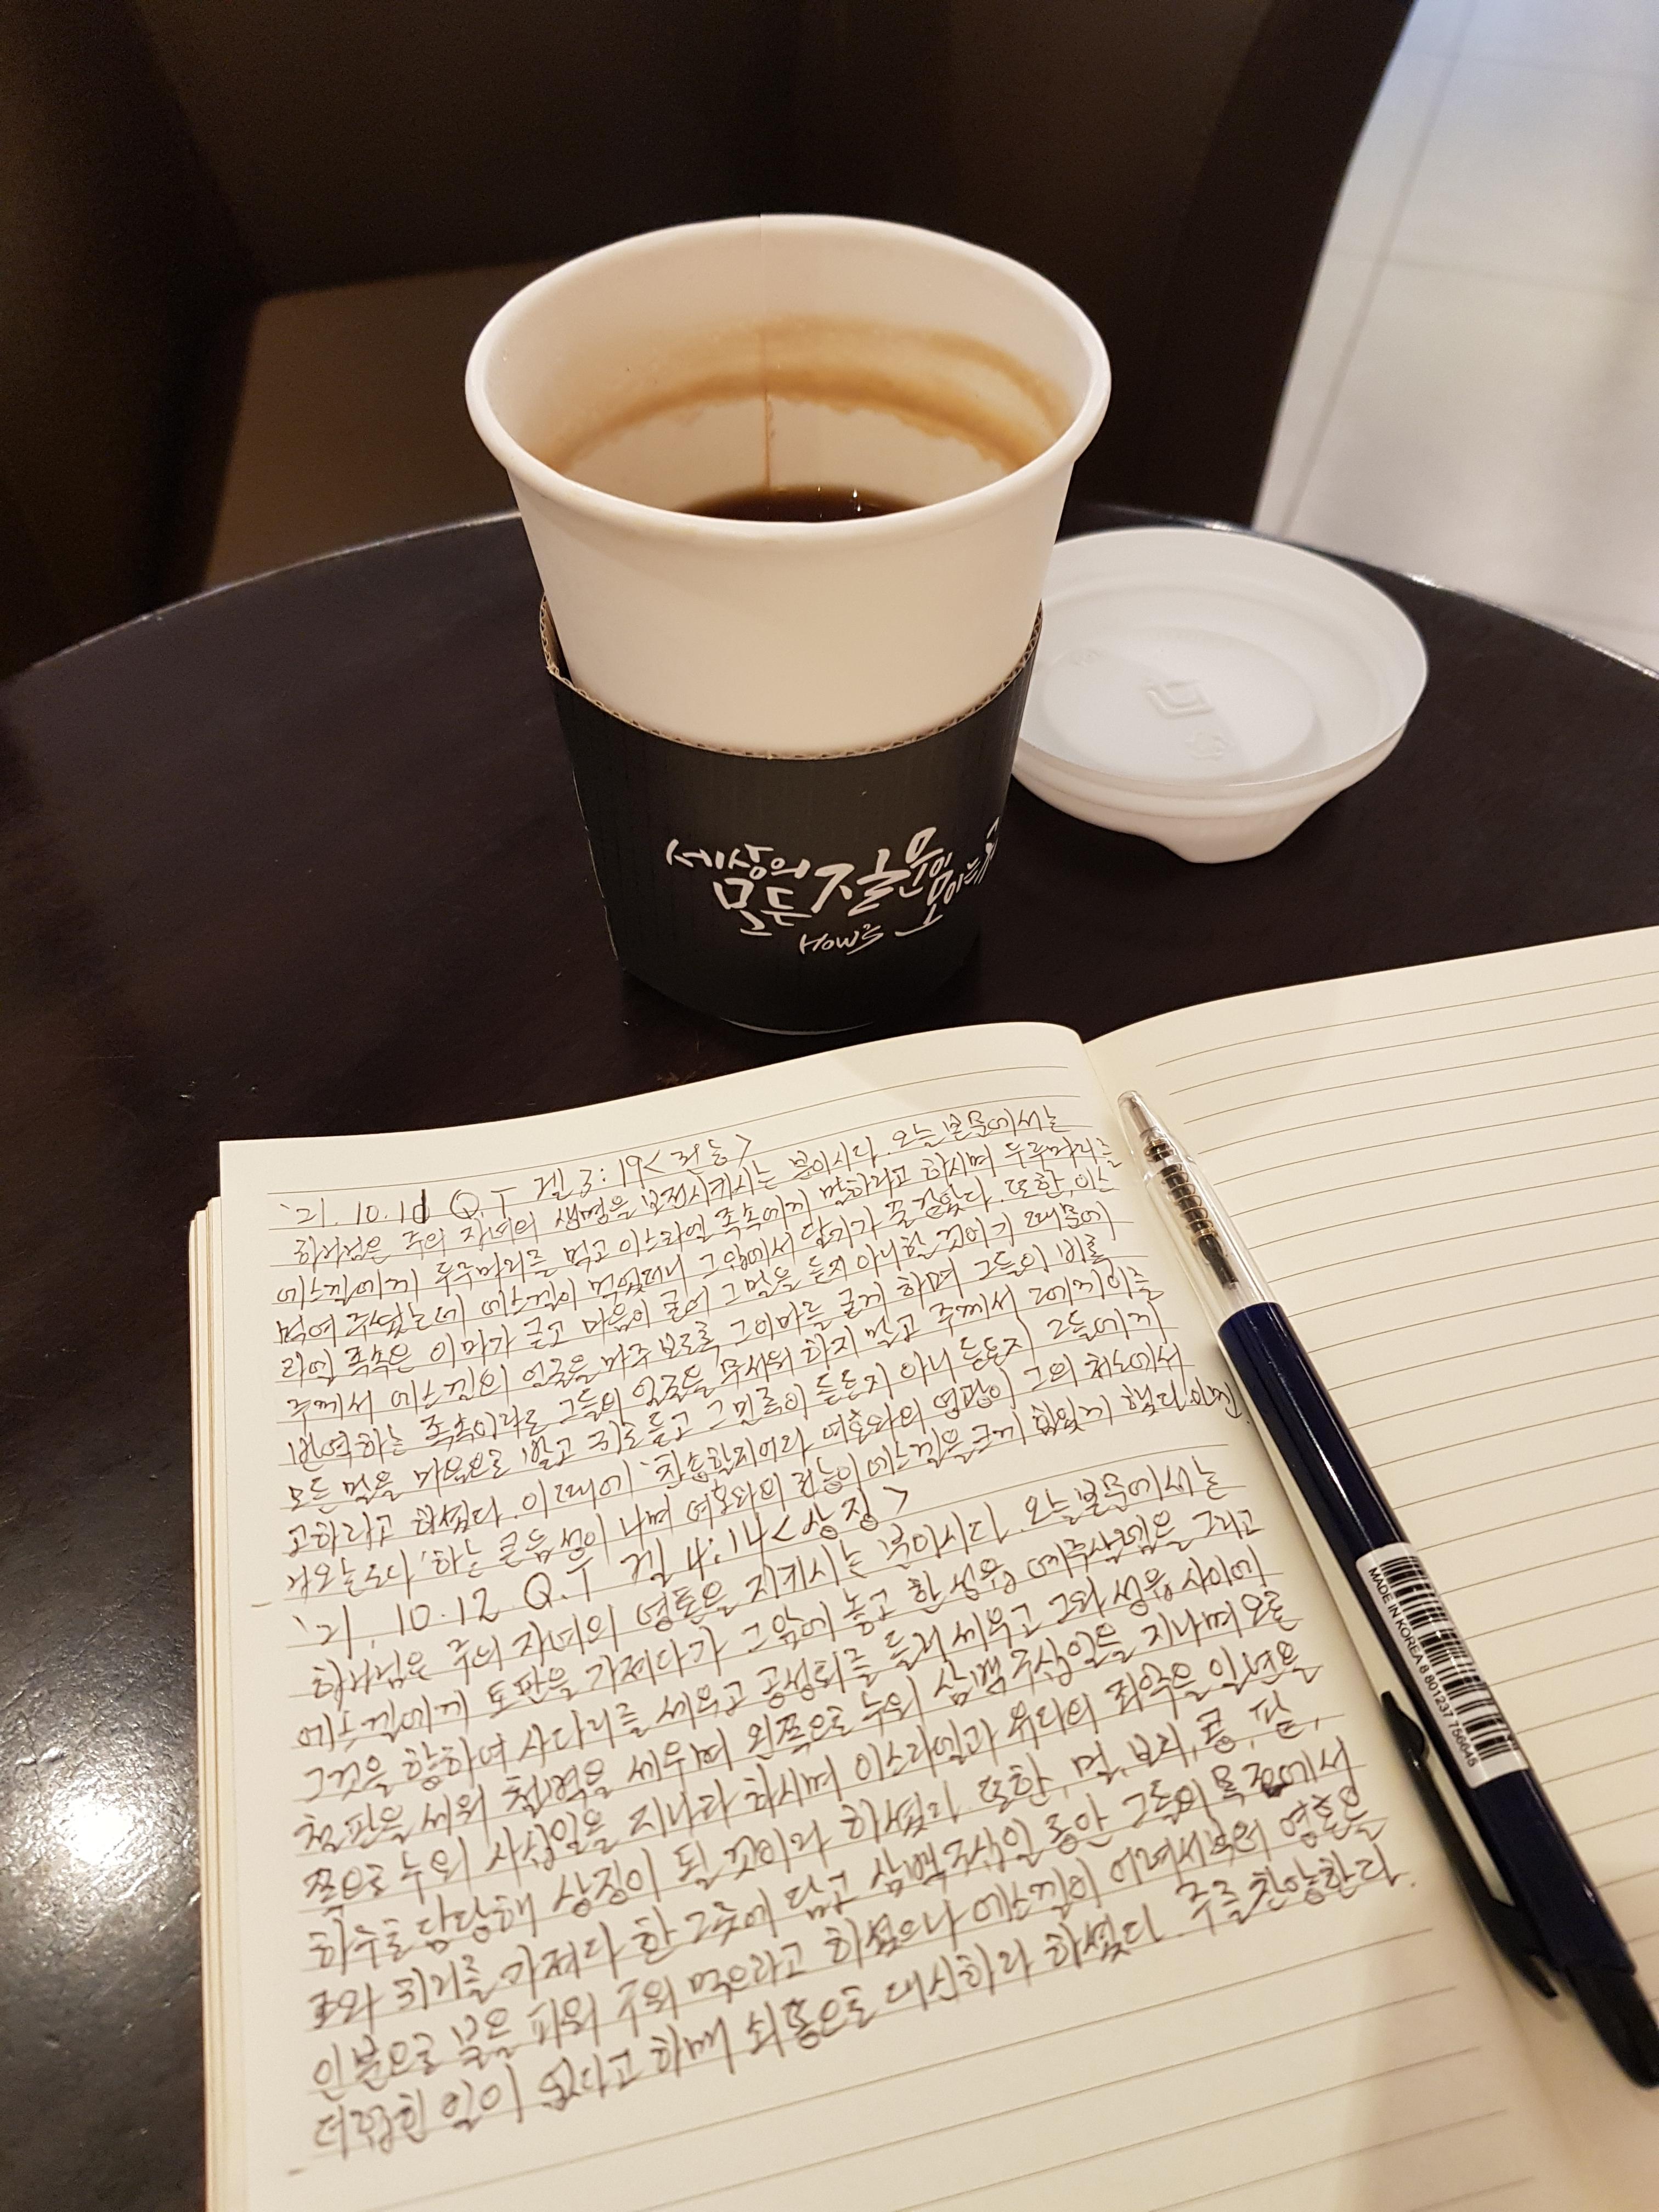 세상의
모든 질문이
모이는
How's
'21. 10. 11 Q.T 겔 3:19 <권능>
하나님은 주의 자녀의 생명을 보전시키시는 분이시다. 오늘 본문에서는
에스겔에게 두루마리를 먹고 이스라엘 족속에게 말하라고 하시며 두루마리를
먹여 주셨는데 에스겔이 먹었더니 그 입에서 달기가 꿀 같았다. 또한, 이스
라엘 족속은 이마가 굳고 마음이 굳어 그 말을 듣지 아니할 것이기 때문에
주께서 에스겔의 얼굴을 마주 보도록 그 이마를 굳게 하며 그들이 비록
반역하는 족속이라도 그들의 얼굴을 무서워 하지 말고 주께서 에게 이를
모든 말을 마음으로 받고 귀로 듣고 그 민족이 듣든지 아니 듣든지 그들에게
고하라고 하셨다. 이 때에 '찬송할지어다 여호와의 영광이 그의 처소에서
나오는도다' 하는 큰 음성이 나며 여호와의 권능이 에스겔을 크게 힘있게 했다. 아멘.
'21. 10. 12 Q.T 겔 4:14 <상징>
하나님은 주의 자녀의 영혼을 지키시는 분이시다. 오늘 본문에서는
에스겔에게 토판을 가져다가 그 앞에 놓고 한 성읍 예루살렘을 그리고
그것을 향하여 사다리를 세우고 공성퇴를 둘러 세우고 그와 성읍 사이에
철판을 세워 철벽을 세우며 왼쪽으로 누워 삼백 구십일을 지나며 오른
쪽으로 누워 사십일을 지나라 하시며 이스라엘과 유다의 죄악을 일년을
하루로 담당해 상징이 될 것이라 하셨다. 또한, 밀, 보리, 콩, 팥,
조와 귀리를 가져다 한 그릇에 담고 삼백 구십일 동안 그들의 목전에서
인분으로 불을 피워 구워 먹으라고 하셨으나 에스겔이 어려서부터 영혼을
더럽힌 일이 없다고 하매 쇠똥으로 대신하라 하셨다. 주를 찬양한다.
MADE IN KOREA 8 801237 756645